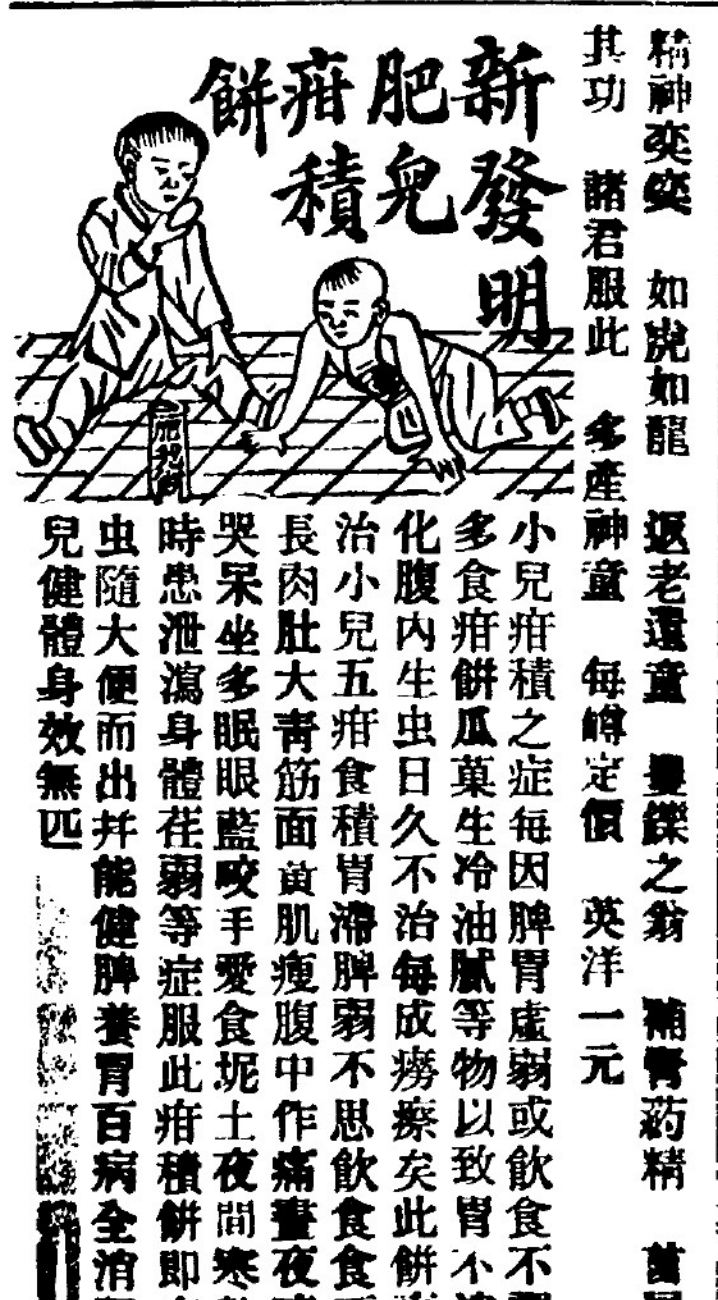 精神奕奕 如虎如龍 返老還童 矍鑠之翁 補腎葯精
其功 諸君服此 多產神童 每罇定價 英洋一元
新發明
肥兒
疳積
餅
肥兒餅
小兒疳積之症每因脾胃虛弱或飲食不
多食疳餅瓜菓生冷油膩等物以致胃不
化腹內生虫日久不治每成癆瘵矣此餅
治小兒五疳食積胃滯脾弱不思飲食食
長肉肚大靑筋面黃肌瘦腹中作痛晝夜
哭呆坐多眠眼藍咬手愛食坭土夜間寒
時患泄瀉身體荏弱等症服此疳積餅即
虫隨大便而出并能健脾養胃百病全消
兒健體身效無匹